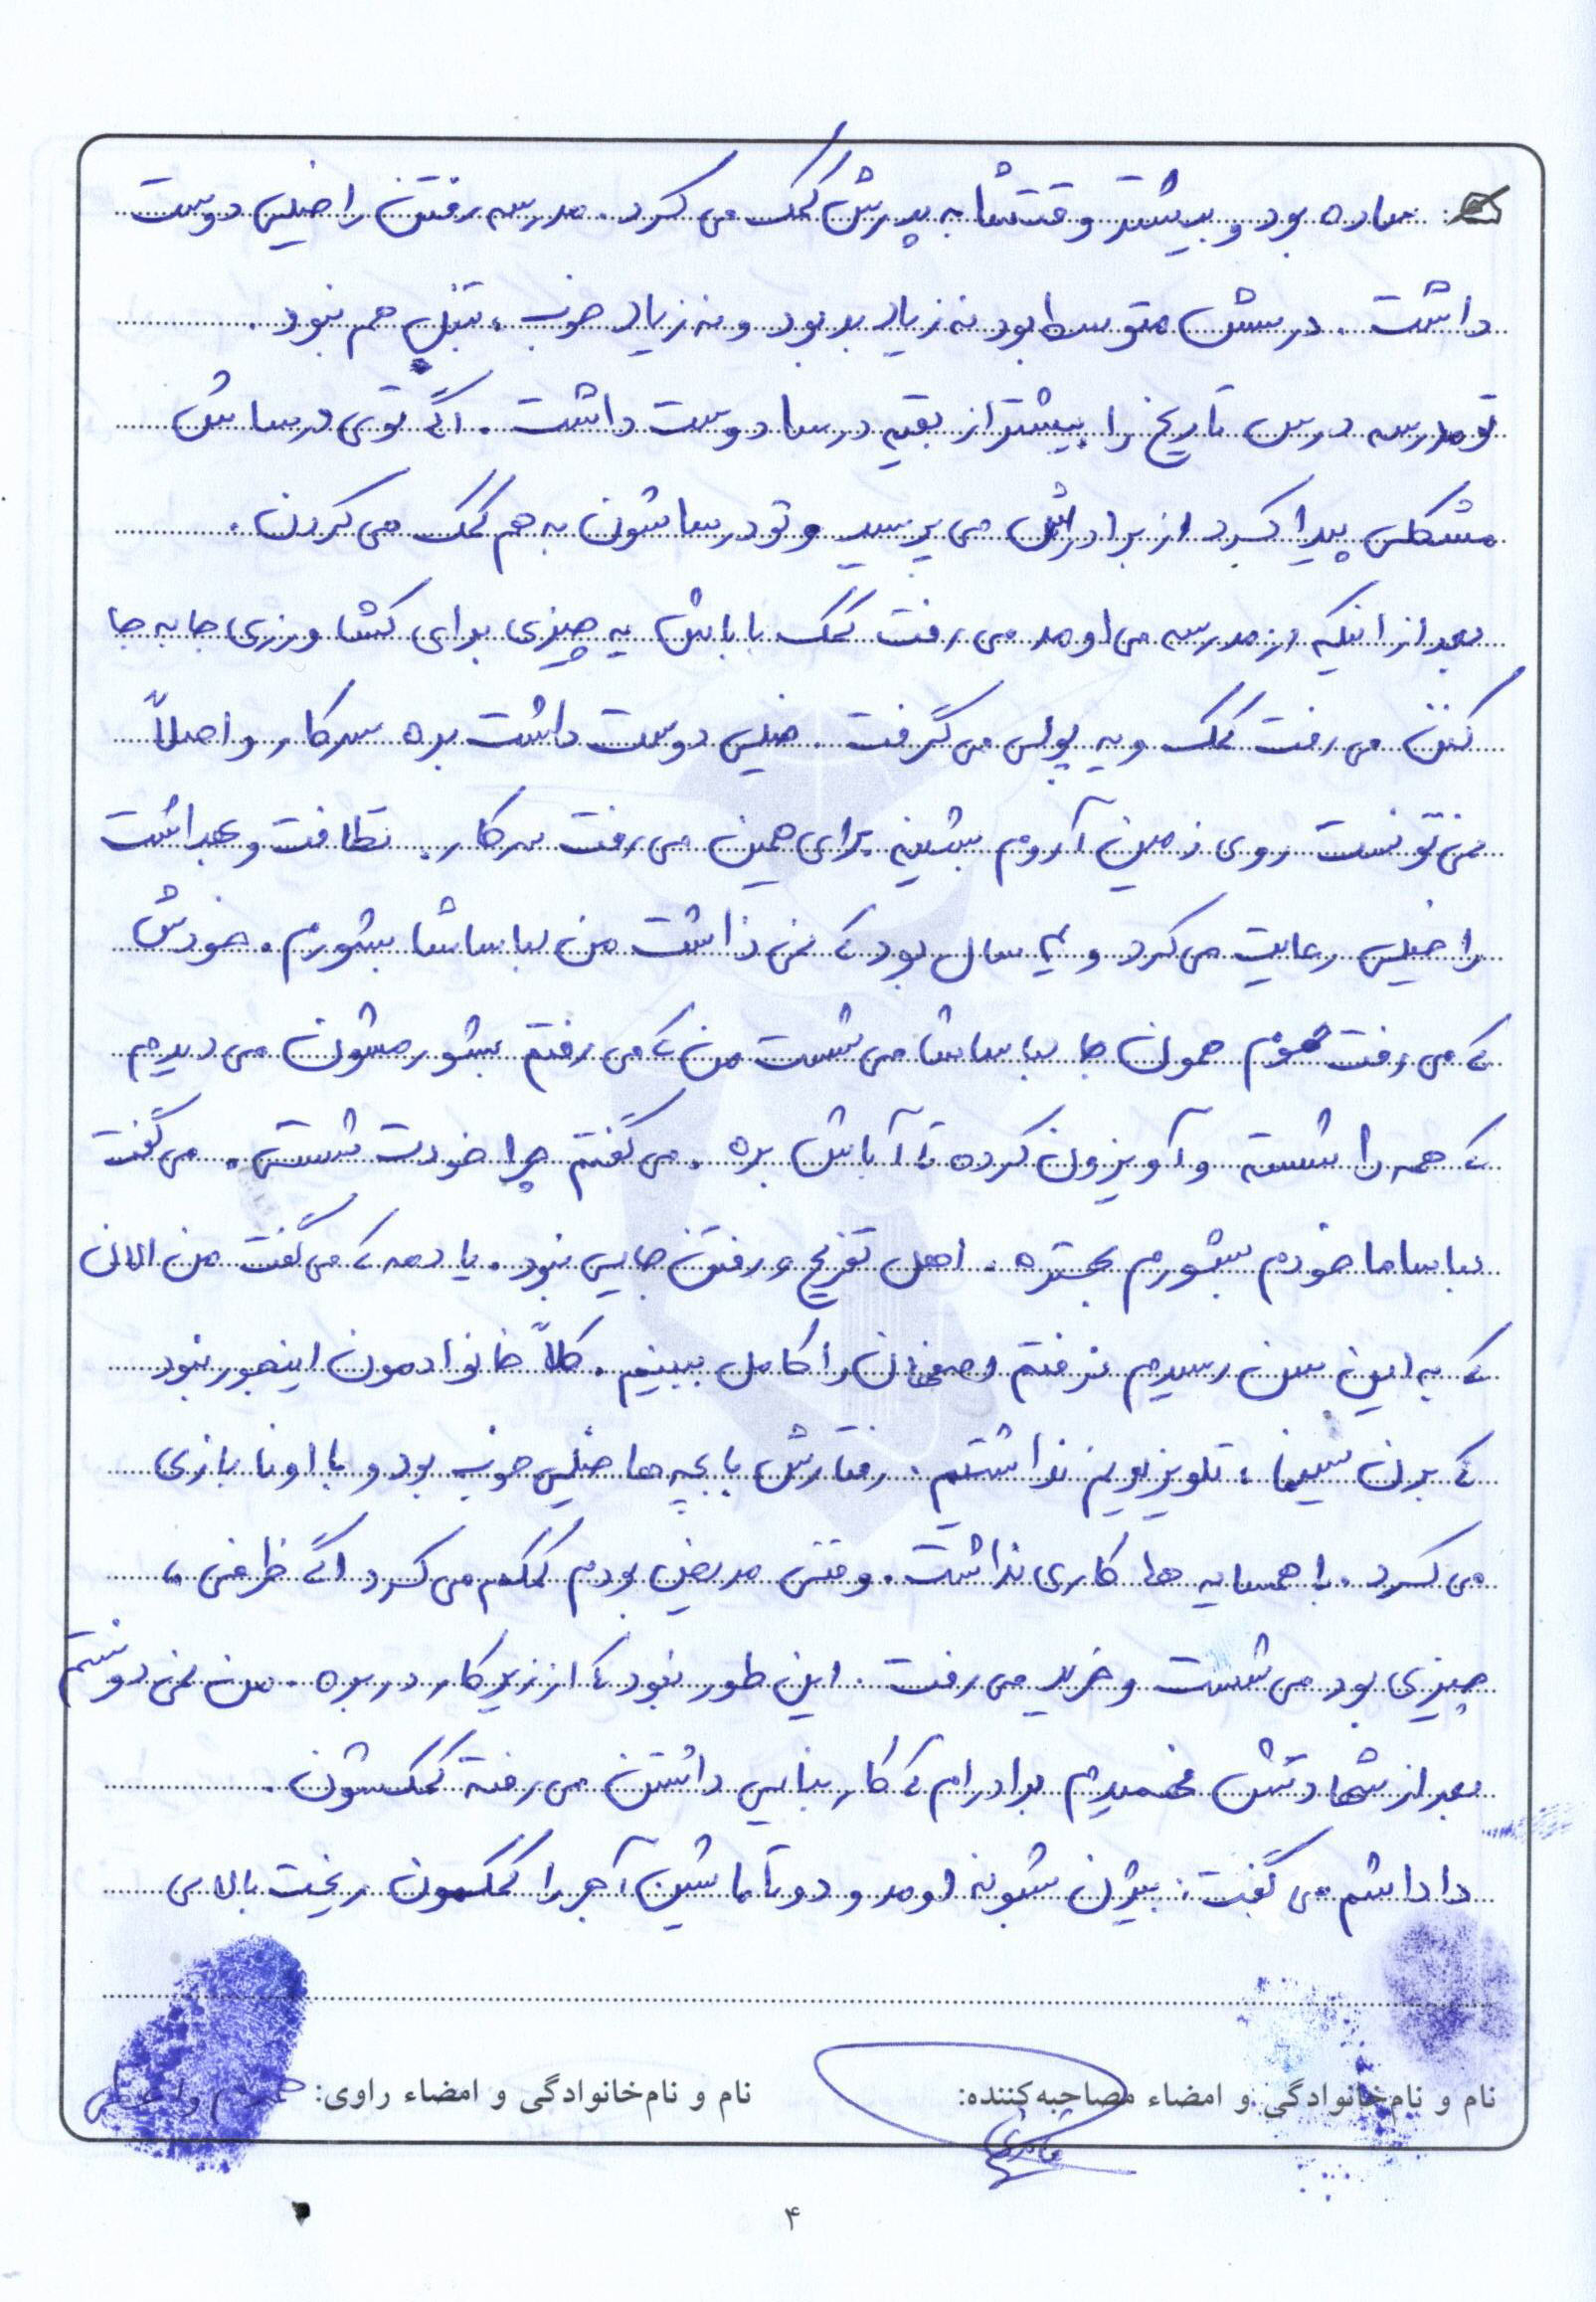 ساده بود و بیشتر وقتشا به پدرش کمک می کرد. مدرسه رفتن را خیلی دوست
داشت. درسش متوسط بود نه زیاد بد بود و نه زیاد خوب، تنبل هم نبود.
تو مدرسه درس تاریخ را بیشتر از بقیه درسا دوست داشت. اگه توی درساش
مشکلی پیدا کرد از برادرش می پرسید و تو درساشون به هم کمک می کردن.
بعد از اینکه از مدرسه می اومد می رفت کمک باباش یه چیزی برای کشاورزی جا به جا
کنن می رفت کمک و یه پولی می گرفت. خیلی دوست داشت بره سر کار و اصلاً
نمی تونست روی زمین آروم بشینه برای همین می رفت سر کار. نظافت و بهداشت
را خیلی رعایت می کرد و یه سال بود که نمی ذاشت من لباساشا بشورم. خودش
که می رفت حموم همون جا لباساشا می شست من که می رفتم بشورمشون می دیدم
که همه را شسته و آویزون کرده تا آباش بره. می گفتم چرا خودت شستی. می گفت
لباساما خودم بشورم بهتره. اهل تفریح و رفتن جایی نبود. یادمه که می گفت من الان
که به این سن رسیدم نرفتم اصفهان را کامل ببینم. کلاً خانوادمون اینجور نبود
که برن سینما، تلویزیونم نداشتیم. رفتارش با بچه ها خیلی خوب بود و با اونا بازی
می کرد. با همسایه ها کاری نداشت. وقتی مریض بودم کمکم می کرد اگه ظرفی،
چیزی بود می شست و خرید می رفت. این طور نبود که از زیر کار در بره. من نمی دونستم
بعد از شهادتش فهمیدم برادرام که کار بنایی داشتن می رفته کمکشون.
داداشم می گفت: بیژن شبونه اومد و دو تا ماشین آجر را کمکمون ریخت بالای
نام و نام‌خانوادگی و امضاء مصاحبه‌کننده:
نام و نام‌خانوادگی و امضاء راوی:
۴